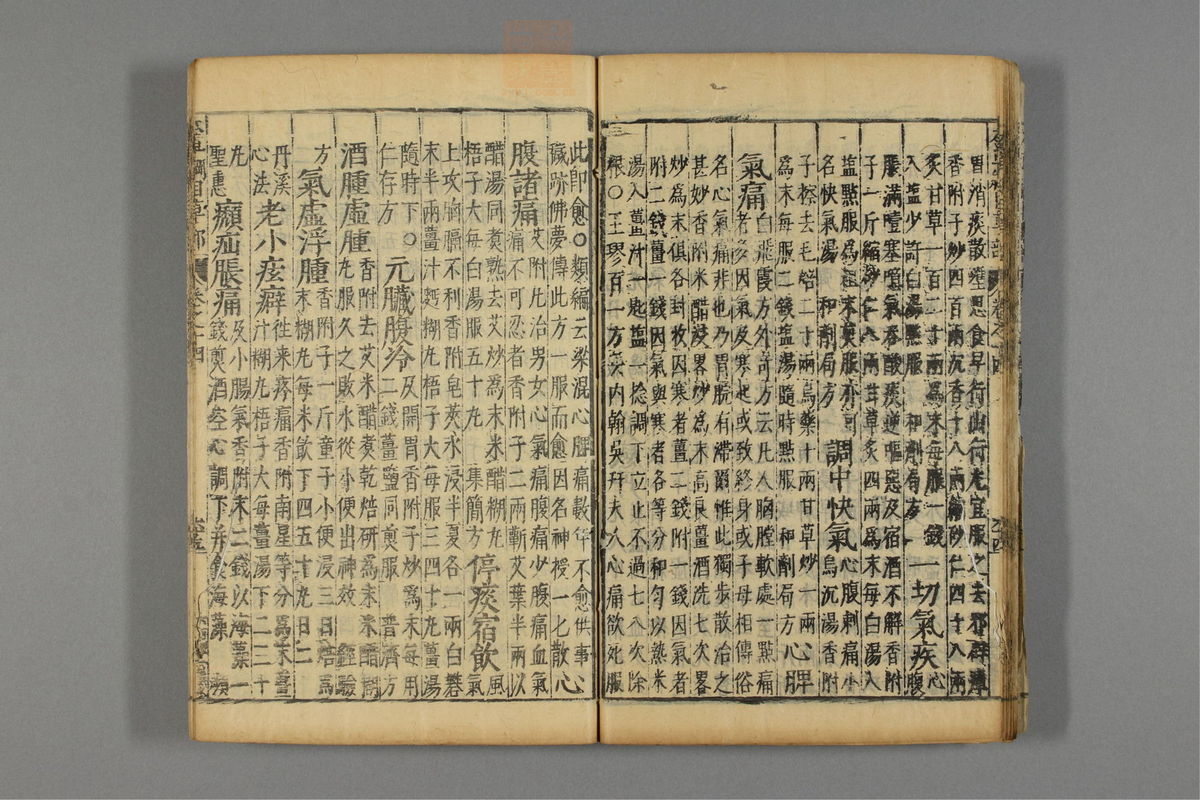 胃消痰散壅思食早行山行尤宜服之去邪辟瘴
香附子炒四百兩沉香十八兩縮砂仁四十八兩
炙甘草一百二十兩爲末每服一錢
入鹽少許白湯點服 和劑局方 一切氣疾心腹
脹滿噎塞噫氣吞酸痰逆嘔惡及宿酒不解香附
子一斤縮砂仁八兩甘草炙四兩爲末每白湯入
鹽點服爲粗末煎服亦可
名快氣湯 和劑局方 調中快氣心腹刺痛小烏沉湯香附
子擦去毛焙二十兩烏藥十兩甘草炒一兩
爲末每服二錢鹽湯隨時點服 和劑局方 心脾
氣痛白飛霞方外奇方云凡人胸膛軟處一點痛
者多因氣及寒起或致終身或子母相傳俗
名心氣痛非也乃胃脘有滯爾惟此獨步散治之
甚妙香附米醋浸畧炒爲末高良薑酒洗七次畧
炒爲末俱各封收因寒者薑二錢附一錢因氣者
附二錢薑一錢因氣與寒者各等分和勻以熱米
湯入薑汁一匙鹽一捻調下立止不過七八次除
根○王璆百一方云内翰吳幵夫人心痛欲死服
此即愈○類編云梁混心脾痛數年不愈供事
穢跡佛夢傳此方一服而愈因名神授一匕散心
腹諸痛艾附丸治男女心氣痛腹痛少腹痛血氣
痛不可忍者香附子二兩蘄艾葉半兩以
醋湯同煮熟去艾炒爲末米醋糊丸
梧子大每白湯服五十九 集簡方 停痰宿飲風氣
上攻胸膈不利香附皂莢水浸半夏各一兩白礬
末半兩薑汁麪糊丸梧子大每服三四十丸薑湯
隨時下○元臟腹冷及開胃香附子炒爲末每用
仁存方 二錢薑鹽同煎服 普濟方
酒腫虛腫香附去皮米醋煮乾焙研爲末米醋糊
丸服久之敗水從小便出神效 經驗
方 氣虛浮腫香附子一斤童子小便浸三日焙爲
末糊丸每米飲下四五十丸日二
丹溪
心法 老小痃癖往來疼痛香附南星等分爲末薑
汁糊丸梧子大每薑湯下二三十
丸
聖惠 癩疝脹痛及小腸氣香附末二錢以海藻一
錢煎酒空心調下并食海藻 瀕